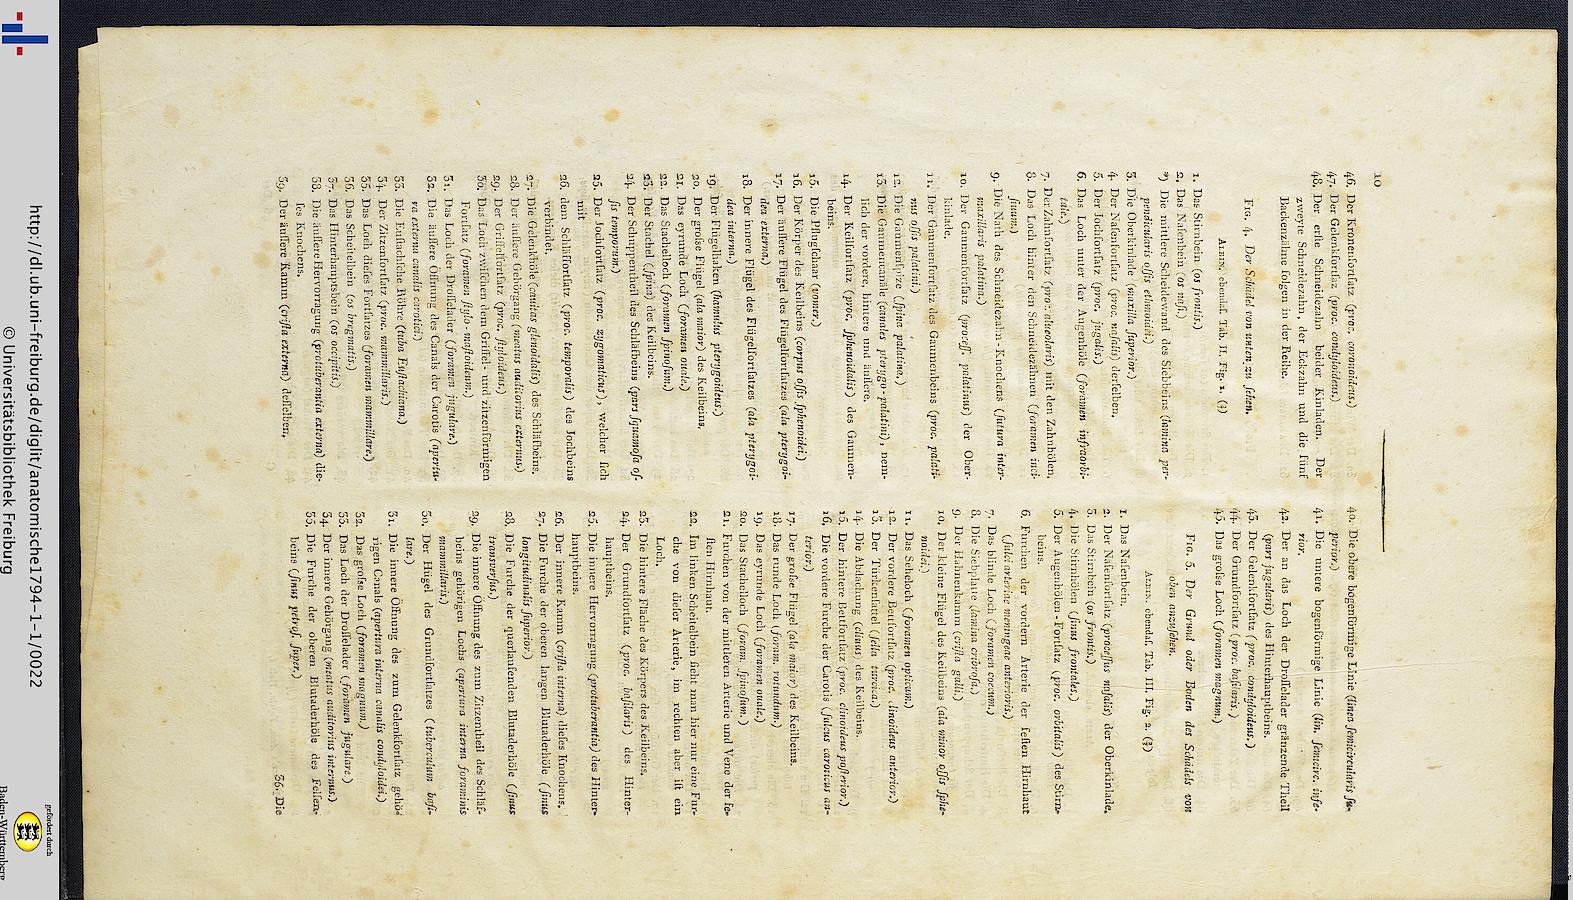 10
46. Der Kronenfortſatz (proc. coronoideus.)
47. Der Gelenkfortſatz (proc. condyloideus.)
48. Der erſte Schneidezahn beider Kinladen. Der
zweyte Schneidezahn, der Eckzahn und die fünf
Backenzähne folgen in der Reihe.
FIG. 4. Der Schädel von unten zu ſehen.
ALBIN. ebendaſ. Tab. II. Fig. 1.
1. Das Stirnbein (os frontis.)
2. Das Naſenbein (os naſi.)
*) Die mittlere Scheidewand des Siebbeins (lamina per-
pendicularis oſſis ethmoidei.)
3. Die Oberkinlade (maxilla ſuperior.)
4. Der Naſenfortſatz (proc. naſalis) derſelben.
5. Der Jochfortſatz (proc. jugalis.)
6. Das Loch unter der Augenhöle (foramen infraorbi-
tale.)
7. Der Zahnfortſatz (proc. alueolaris) mit den Zahnhölen.
8. Das Loch hinter den Schneidezähnen (foramen inci-
ſiuum.)
9. Die Nath des Schneidezahn-Knochens (ſutura inter-
maxillaris palatina.)
10. Der Gaumenfortſatz (proceſſ. palatinus) der Ober-
kinlade.
11. Der Gaumenfortſatz des Gaumenbeins (proc. palati-
nus oſſis palatini.)
12. Die Gaumenſpitze (ſpina palatina.)
13. Die Gaumencanäle (canales pterygo-palatini), nem-
lich der vordere, hintere und äuſſere.
14. Der Keilfortſatz (proc. ſphenoidalis) des Gaumen-
beins.
15. Die Pflugſchaar (vomer.)
16. Der Körper des Keilbeins (corpus oſſis ſphenoidei.)
17. Der äuſſere Flügel des Flügelfortſatzes (ala pterygoi-
dea externa.)
18. Der innere Flügel des Flügelfortſatzes (ala pterygoi-
dea interna.)
19. Der Flügelhaken (hamulus pterygoideus.)
20. Der groſse Flügel (ala maior) des Keilbeins.
21. Das eyrunde Loch (foramen ouale.)
22. Das Stachelloch (foramen ſpinoſum.)
23. Der Stachel (ſpina) des Keilbeins.
24. Der Schuppentheil des Schlafbeins (pars ſquamoſa oſ-
ſis temporum.)
25. Der Jochfortſatz (proc. zygomaticus), welcher ſich
mit
26. dem Schläffortſatz (proc. temporalis) des Jochbeins
verbindet.
27. Die Gelenkhöle (cauitas glenoidalis) des Schlafbeins.
28. Der äuſſere Gehörgang (meatus auditorius externus)
29. Der Griffelfortſatz (proc. ſtyloideus.)
30. Das Loch zwiſchen dem Griffel- und zitzenförmigen
Fortſatz (foramen ſtylo-maſtoideum.)
31. Das Loch der Droſſelader (foramen jugulare.)
32. Die äuſſere Öffnung des Canals der Carotis (apertu-
ra externa canalis carotici.)
33. Die Euſtachiſche Röhre (tuba Euſtachiana.)
34. Der Zitzenfortſatz (proc. mammillaris.)
35. Das Loch dieſes Fortſatzes (foramen mammillare.)
36. Das Scheitelbein (os bregmatis.)
37. Das Hinterhauptsbein (os occipitis.)
38. Die äuſſere Hervorragung (protuberantia externa) die-
ſes Knochens.
39. Der äuſſere Kamm (criſta externa) deſſelben.
40. Die obere bogenförmige Linie (linea ſemicircularis ſu-
perior.)
41. Die untere bogenförmige Linie (lin. ſemicirc. infe-
rior.
42. Der an das Loch der Droſſelader gränzende Theil
(pars jugularis) des Hinterhauptbeins.
43. Der Gelenkfortſatz (proc. condyloideus.)
44. Der Grundfortſatz (proc. baſilaris.)
45. Das groſse Loch (foramen magnum.)
FIG. 5. Der Grund oder Boden des Schädels von
oben anzuſehen.
ALBIN. ebendaſ. Tab. III. Fig. 2.
1. Das Naſenbein.
2. Der Naſenfortſatz (proceſſus naſalis) der Oberkinlade.
3. Das Stirnbein (os frontis.)
4. Die Stirnhölen (ſinus frontales.)
5. Der Augenhölen-Fortſatz (proc. orbitalis) des Stirn-
beins.
6. Furchen der vordern Arterie der feſten Hirnhaut
(ſulci arteriae meningeae anterioris.)
7. Das blinde Loch (foramen coecum.)
8. Die Siebplatte (lamina cribroſa.)
9. Der Hahnenkamm (criſta galli.)
10. Der kleine Flügel des Keilbeins (ala minor oſſis ſphe-
noidei.)
11. Das Seheloch (foramen opticum.)
12. Der vordere Bettfortſatz (proc. clinoideus anterior.)
13. Der Türkenſattel (ſella turcica.)
14. Die Abdachung (cliuus) des Keilbeins.
15. Der hintere Bettfortſatz (proc. clinoideus poſterior.)
16. Die vordere Furche der Carotis (ſulcus caroticus an-
terior.)
17. Der groſse Flügel (ala maior) des Keilbeins.
18. Das runde Loch (foram. rotundum.)
19. Das eyrunde Loch (foramen ouale.)
20. Das Stachelloch (foram. ſpinoſum.)
21. Furchen von der mittleren Arterie und Vene der fe-
ſten Hirnhaut.
22. Im linken Scheitelbein ſieht man hier nur eine Fur-
che von dieſer Arterie, im rechten aber iſt ein
Loch.
23. Die hintere Fläche des Körpers des Keilbeins.
24. Der Grundfortſatz (proc. baſilaris) des Hinter-
hauptbeins.
25. Die innere Hervorragung (protuberantia) des Hinter-
hauptbeins.
26. Der innere Kamm (criſta interna) dieſes Knochens.
27. Die Furche der oberen langen Blutaderhöle (ſinus
longitudinalis ſuperior.)
28. Die Furche der querlaufenden Blutaderhöle (ſinus
transuerſus.)
29. Die innere Öffnung des zum Zitzentheil des Schlaf-
beins gehörigen Lochs (apertura interna foraminis
mammillaris.)
30. Der Hügel des Grundfortſatzes (tuberculum baſi-
lare.)
31. Die innere Öffnung des zum Gelenkfortſatz gehö-
rigen Canals (apertura interna canalis condyloidei.)
32. Das groſse Loch (foramen magnum.)
33. Das Loch der Droſſelader (foramen jugulare.)
34. Der innere Gehörgang (meatus auditorius internus.)
35. Die Furche der oberen Blutaderhöle des Felſen-
beins (ſinus petroſ. ſuper.)
36. Die
http://dl.ub.uni-freiburg.de/diglit/anatomische1794-1-1/0022
© Universitätsbibliothek Freiburg
gefördert durch
Baden-Württemberg